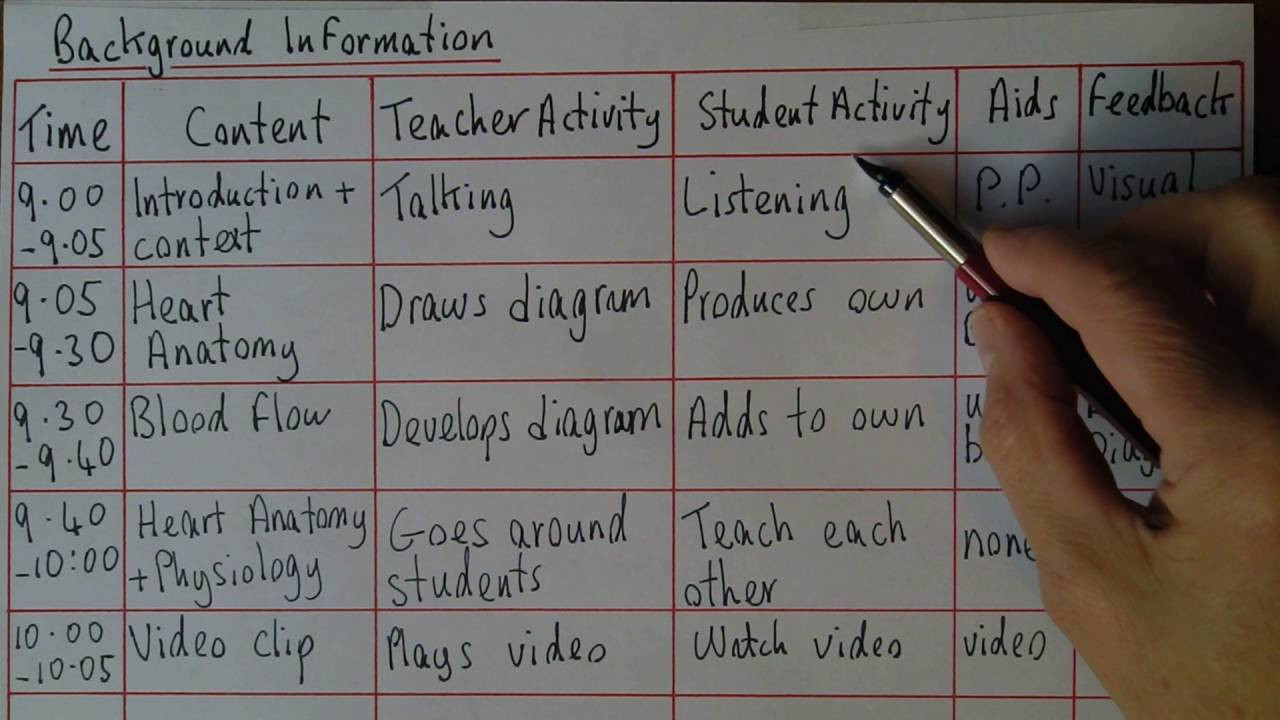 Background Information
Time Content Teacher Activity Student Activity Aids Feedback
9.00 Introduction + Talking Listening P.P. Visual
-9.05 context
9.05 Heart Draws diagram Produces own
-9.30 Anatomy
9.30 Blood flow Develops diagram Adds to own
-9.40
9.40 Heart Anatomy Goes around Teach each none
-10:00 + Physiology students other
10.00 Video clip Plays video Watch video video
-10.05